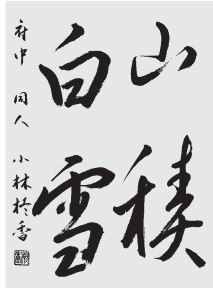 山積
白雪
府中 同人 小林柊香